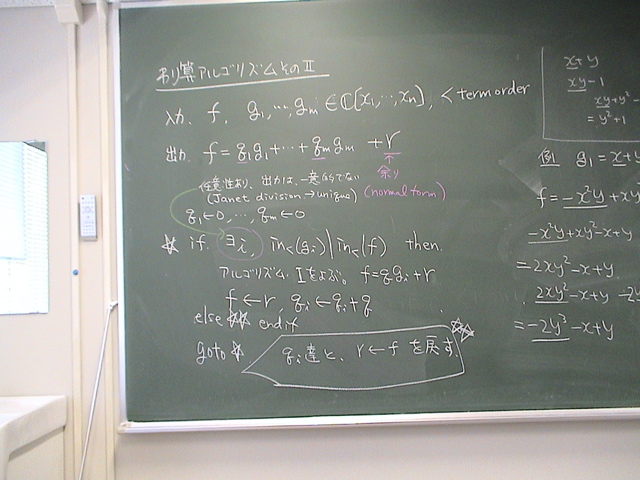 割算アルゴリズムその II
入力. f, g₁,…,gₘ ∈ ℂ[x₁,…,xₙ], < term order
出力. f = q₁g₁+…+qₘgₘ + r
↑
余り
(normal form)
任意性あり、出力は、一意的でない
(Janet division → unique)
q₁←0, …, qₘ←0
☆ if ∃i, in<(gᵢ) | in<(f) then
アルゴリズム I をよぶ。 f = qgᵢ + r
f ← r, qᵢ ← qᵢ + q
else ☆☆ endif
goto ☆
qᵢ達と、r ← f を戻す.
☆☆
x+y
xy-1
xy+y²-
= y²+1
例 g₁ = x+y
f = -x²y + xy
-x²y + xy² - x + y
= 2xy² - x + y
2xy² - x + y - 2
= -2y³ - x + y